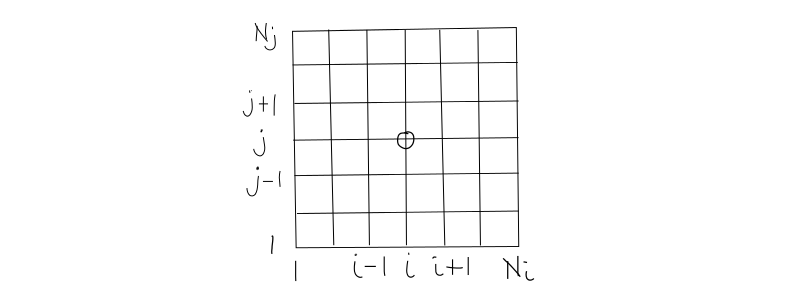 Nj
j+1
j
j-1
1
1 i-1 i i+1 Ni